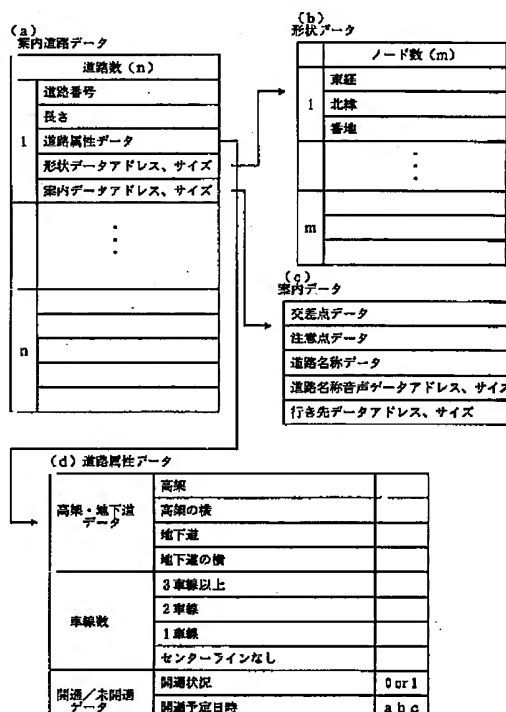 (a)
案内道路データ
道路数 (n)
1
道路番号
長さ
道路属性データ
形状データアドレス、サイズ
案内データアドレス、サイズ
n
(b)
形状データ
ノード数 (m)
1
東経
北緯
番地
m
(c)
案内データ
交差点データ
注意点データ
道路名称データ
道路名称音声データアドレス、サイズ
行き先データアドレス、サイズ
(d) 道路属性データ
高架・地下道
データ
高架
高架の横
地下道
地下道の横
車線数
3車線以上
2車線
1車線
センターラインなし
開通/未開通
データ
開通状況
0 or 1
開通予定日時
a b c